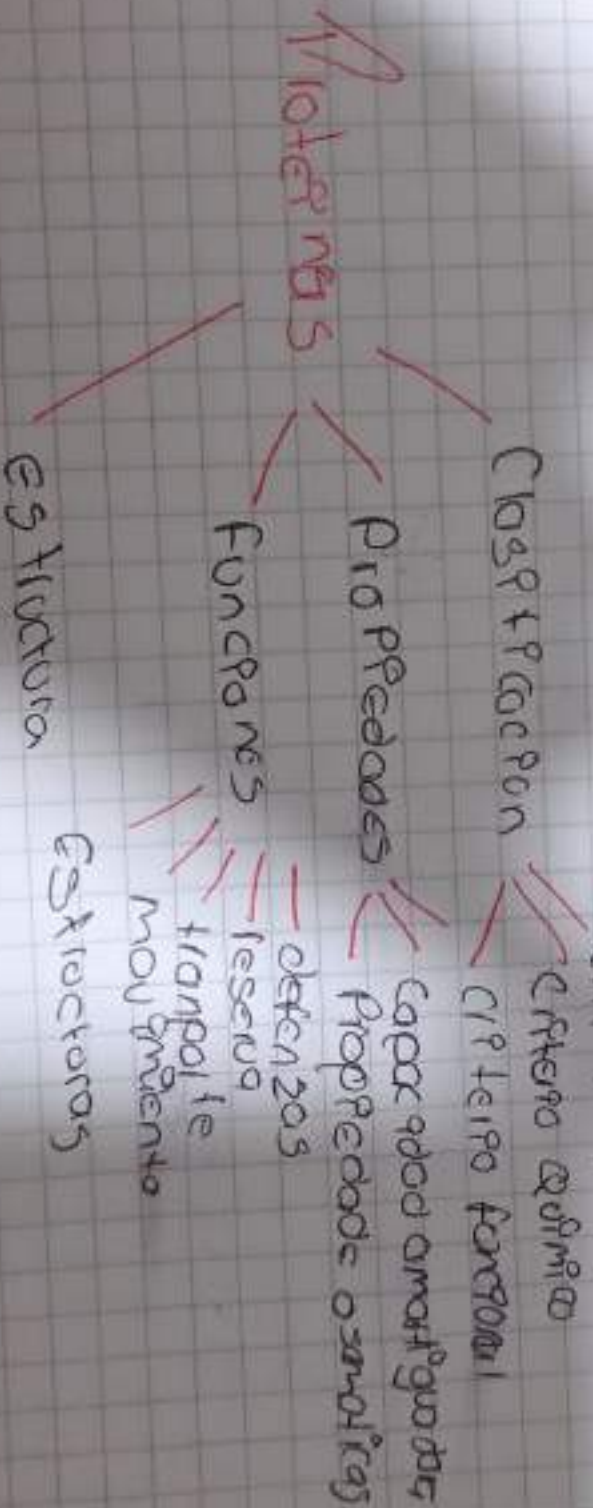 Proteinas
Clasificacion
Criterio Químico
Criterio funcional
Propiedades
Capacidad amortiguadora
Propiedade osmoticas
funciones
defenzas
reserva
tranporte
movimiento
Estructura
Estructuras